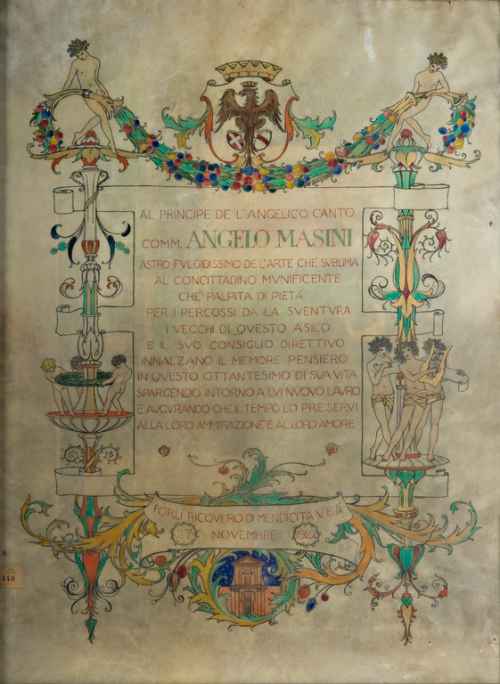 AL PRINCIPE DE L'ANGELICO CANTO
COMM. ANGELO MASINI
ASTRO FVLGIDISSIMO DE L'ARTE CHE SVBLIMA
AL CONCITTADINO MVNIFICENTE
CHE PALPITA DI PIETA
PER I PERCOSSI DA LA SVENTVRA
I VECCHI DI QVESTO ASILO
E IL SVO CONSIGLIO DIRETTIVO
INNALZANO IL MEMORE PENSIERO
IN QVESTO OTTANTESIMO DI SVA VITA
SPARGENDO INTORNO A LVI NVOVO LAVRO
E AVGVRANDO CHE IL TEMPO LO PRESERVI
ALLA LORO AMMIRAZIONE E AL LORO AMORE
FORLI RICOVERO DI MENDICITA V.E.II
NOVEMBRE